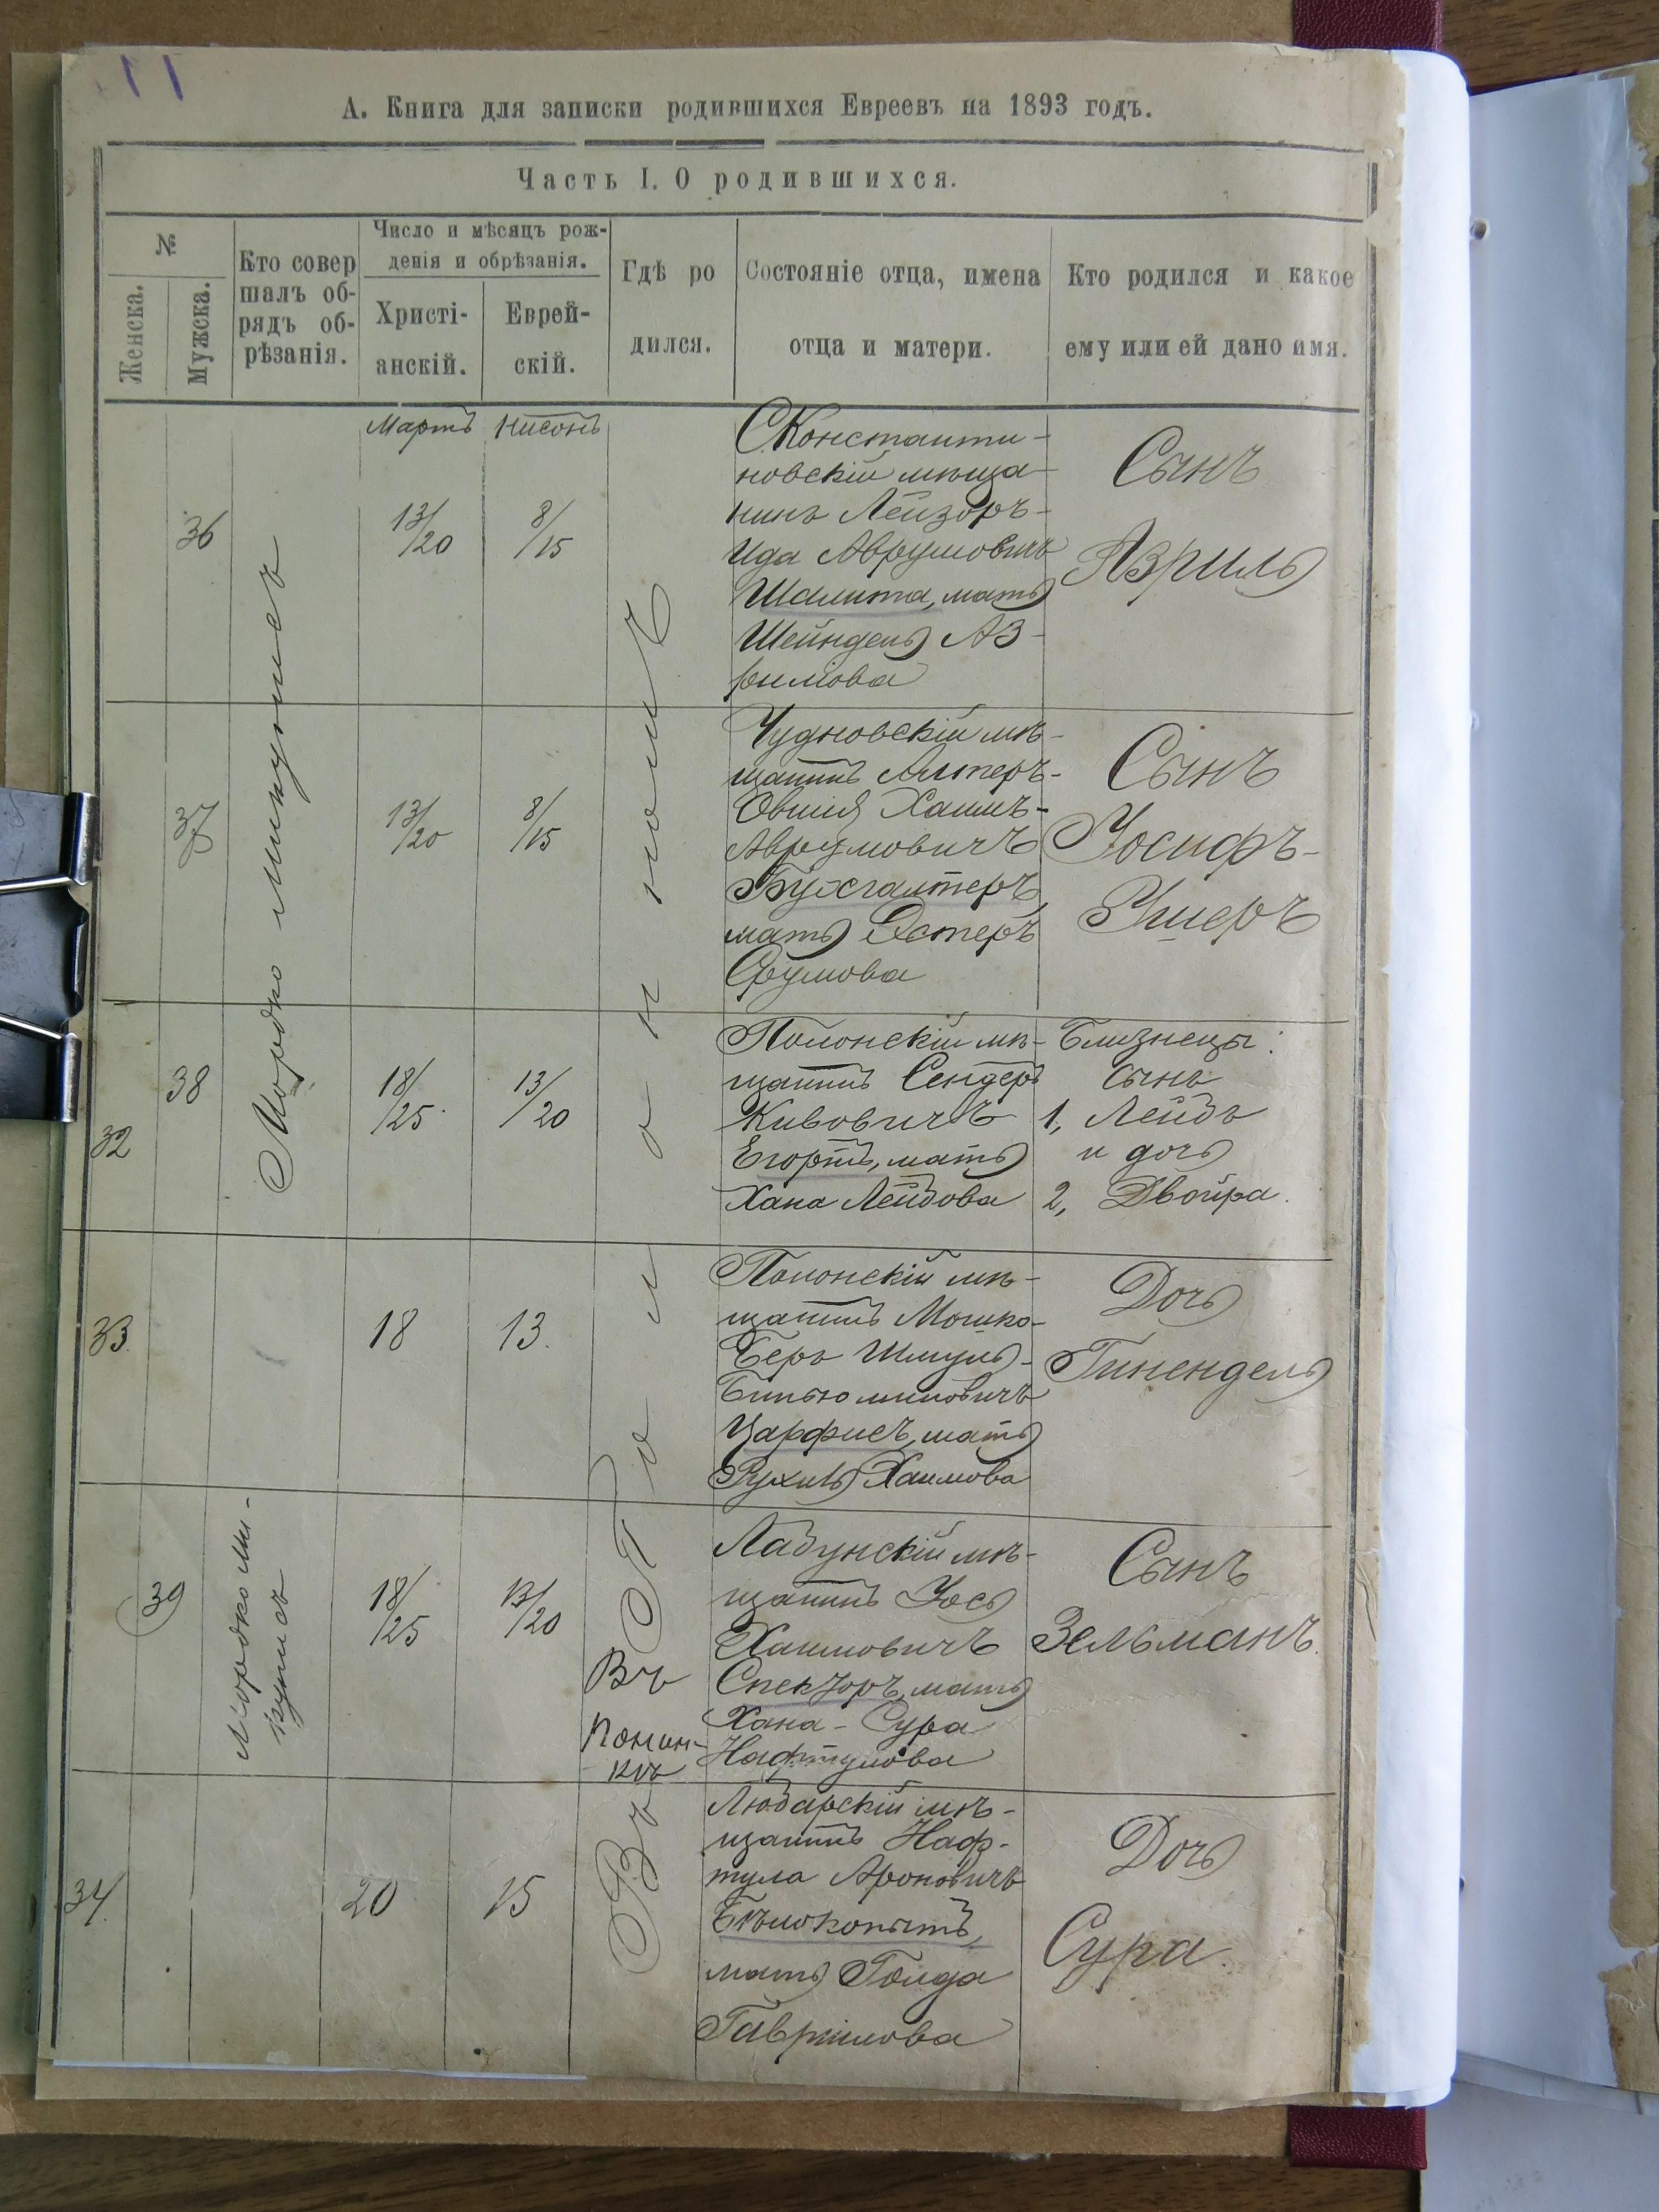 11
А. Книга для записки родившихся Евреевъ на 1893 годъ.
Часть I. О родившихся.
№
Женска.
Мужска.
Кто совер
шалъ об-
рядъ об-
рѣзанія.
Число и мѣсяцъ рож-
денія и обрѣзанія.
Христі-
анскій.
Еврей-
скій.
Гдѣ ро
дился.
Состояніе отца, имена
отца и матери.
Кто родился и какое
ему или ей дано имя.
Мартъ
Нисонъ
Мордко Микулисъ
36
13/20
8/15
С Константи-
новскій мѣща-
нинъ Лейзоръ-
Ида Аврумовичъ
Шалита, мать
Шейндель Аз-
рилова
Сынъ
Азриль
37
13/20
8/15
Чудновскій мѣ-
щанинъ Алтеръ-
Овшія Хаимъ-
Аврумовичъ
Бухгалтеръ,
мать Эстеръ
Срулова
Сынъ
Іосифъ-
Ушеръ
32
38
18/25
13/20
Полонскій мѣ-
щанинъ Сендеръ
Кивовичъ
Егортъ, мать
Хана Лейбова
Близнецы:
сынъ
1, Лейбъ
и дочь
2, Двойра.
33.
18
13.
Полонскій мѣ-
щанинъ Мошко-
Беръ Шмуль-
Биньюминовичъ
Царфисъ, мать
Рухль Хаимова
Дочь
Гинендель
39
Мордко Ми-
кулисъ
18/25
13/20
Въ
Понин-
кѣ
Лабунскій мѣ-
щанинъ Іось
Хаимовичъ
Спекторъ, мать
Хана-Сура
Нафтулова
Сынъ
Зельманъ.
34.
20
15
Въ
Любарскій мѣ-
щанинъ Наф-
тула Ароновичъ
Бѣлокопытъ,
мать Голда
Гаврилова
Дочь
Сура.